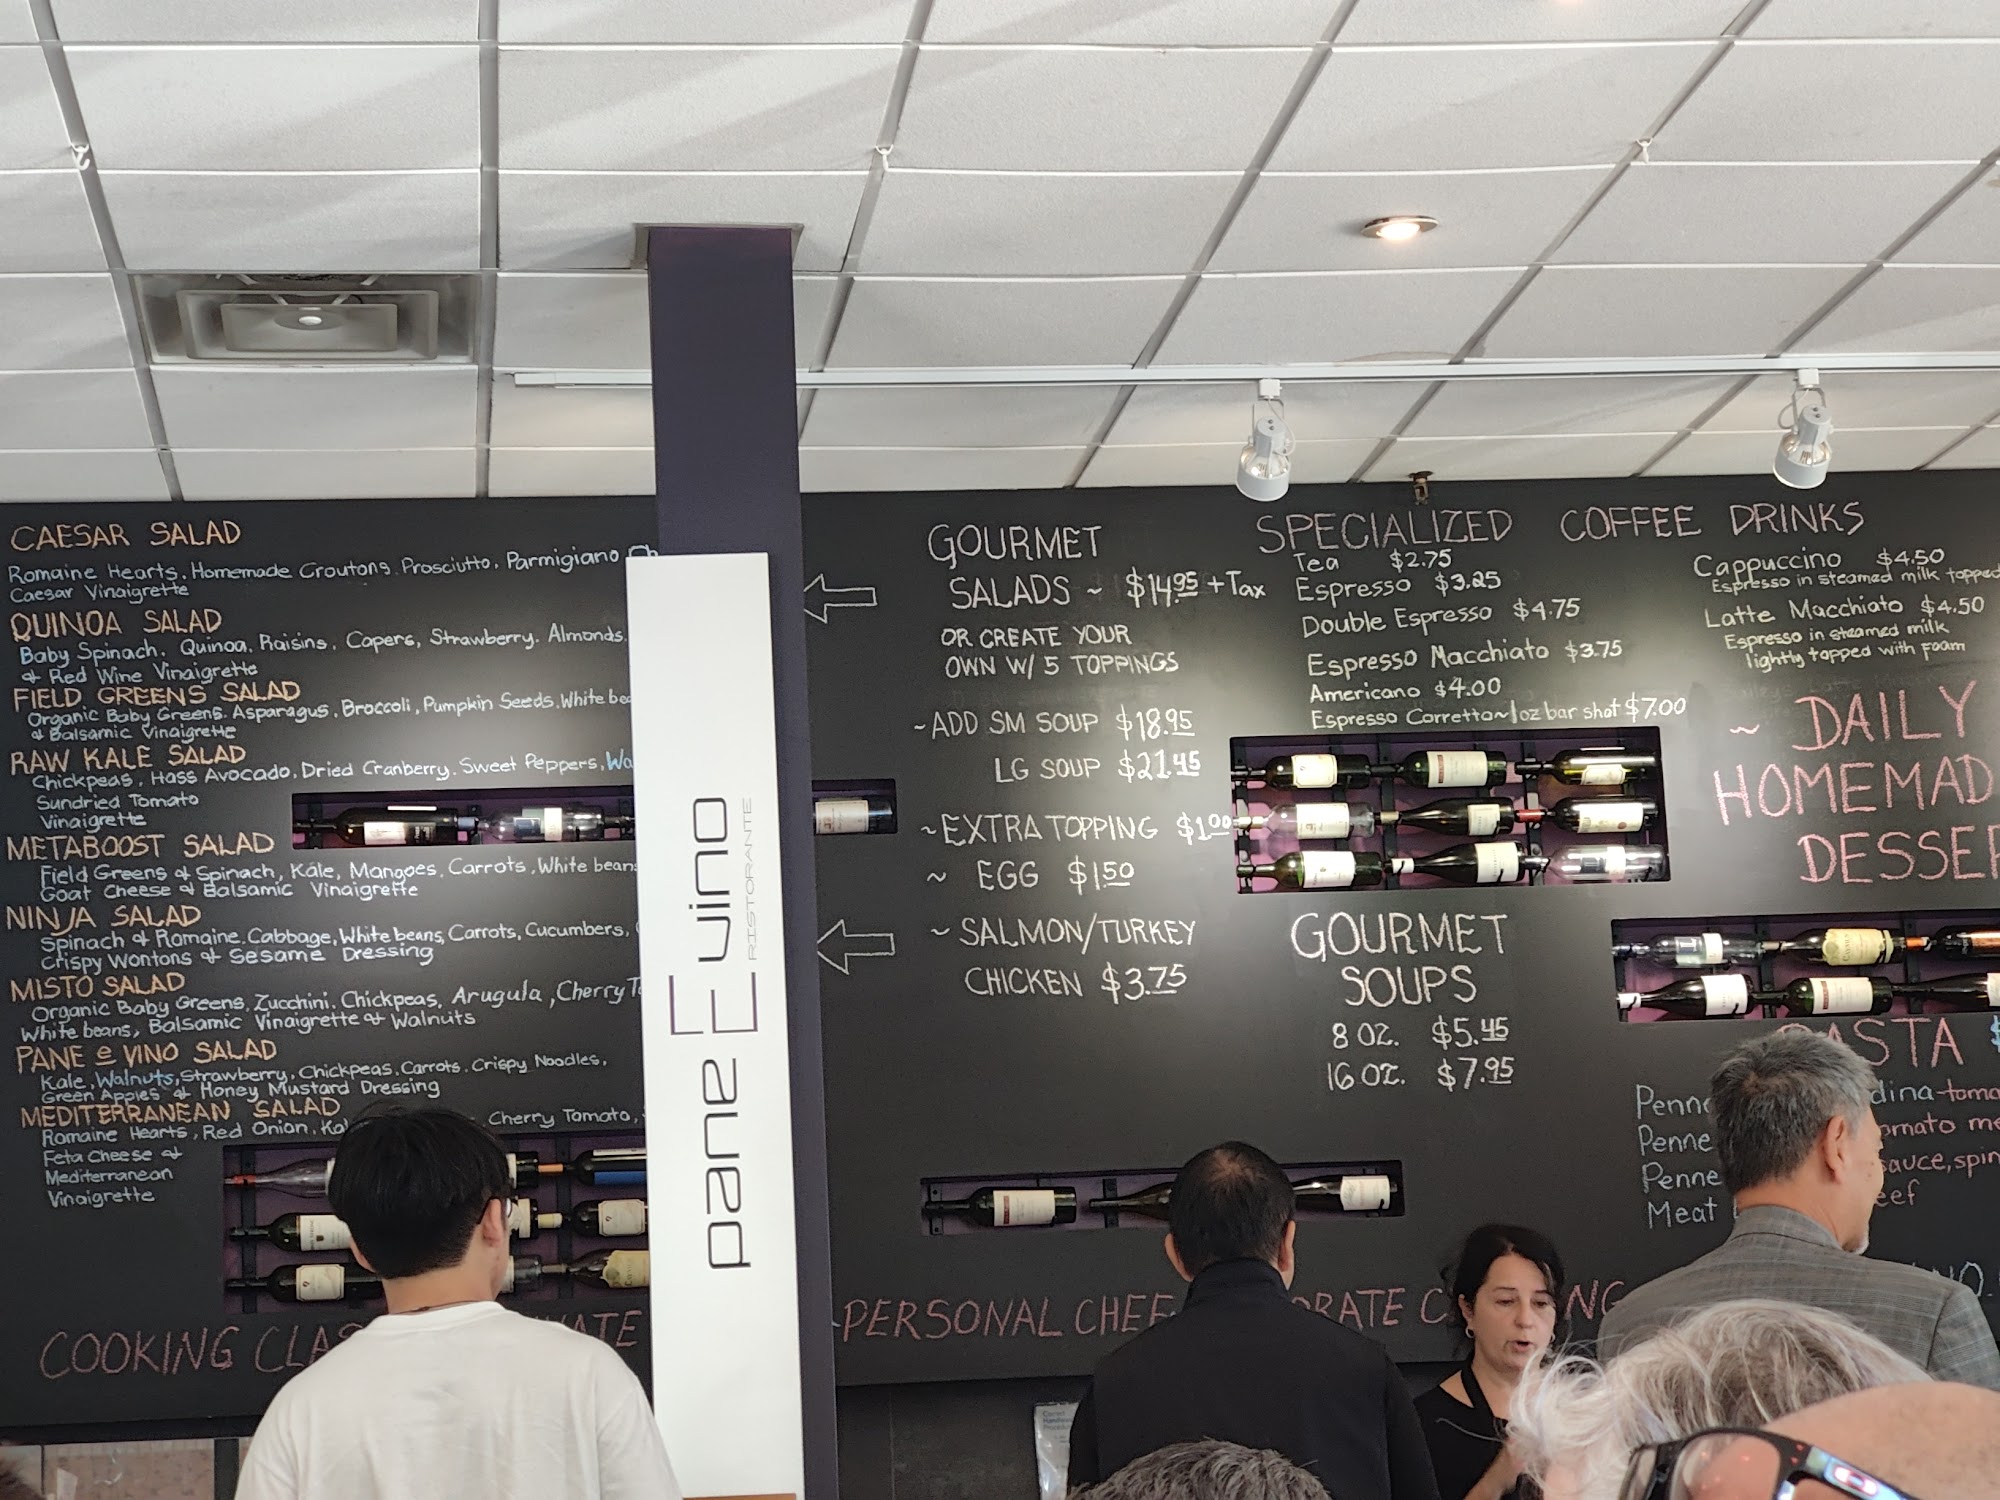 CAESAR SALAD
Romaine Hearts, Homemade Croutons, Prosciutto, Parmigiano
Caesar Vinaigrette
QUINOA SALAD
Baby Spinach, Quinoa, Raisins, Capers, Strawberry, Almonds,
& Red Wine Vinaigrette
FIELD GREENS SALAD
Organic Baby Greens, Asparagus, Broccoli, Pumpkin Seeds, White
& Balsamic Vinaigrette
RAW KALE SALAD
Chickpeas, Hass Avocado, Dried Cranberry, Sweet Peppers,
Sundried Tomato
Vinaigrette
METABOOST SALAD
Field Greens & Spinach, Kale, Mangoes, Carrots, White beans
Goat Cheese & Balsamic Vinaigrette
NINJA SALAD
Spinach & Romaine, Cabbage, White beans, Carrots, Cucumbers,
Crispy Wontons & Sesame Dressing
MISTO SALAD
Organic Baby Greens, Zucchini, Chickpeas, Arugula, Cherry
White beans, Balsamic Vinaigrette & Walnuts
PANE e VINO SALAD
Kale, Walnuts, Strawberry, Chickpeas, Carrots, Crispy Noodles,
Green Apples & Honey Mustard Dressing
MEDITERRANEAN SALAD
Romaine Hearts, Red Onion, Cherry Tomato,
Feta Cheese &
Mediterranean
Vinaigrette
COOKING
pane E vino
RISTORANTE
GOURMET
SALADS ~ $14.95 + Tax
OR CREATE YOUR
OWN W/ 5 TOPPINGS
~ADD SM SOUP $18.95
LG SOUP $21.45
~EXTRA TOPPING $1.00
~ EGG $1.50
~ SALMON/TURKEY
CHICKEN $3.75
SPECIALIZED COFFEE DRINKS
Tea $2.75
Espresso $3.25
Double Espresso $4.75
Espresso Macchiato $3.75
Americano $4.00
Espresso Corretto~1oz bar shot $7.00
Cappuccino $4.50
Espresso in steamed milk topped
Latte Macchiato $4.50
Espresso in steamed milk
lightly topped with foam
~ DAILY
HOMEMAD
DESSER
GOURMET
SOUPS
8 OZ. $5.45
16 OZ. $7.95
PASTA
Penne
Penne
sauce,
Penne
Meat
PERSONAL CHEF